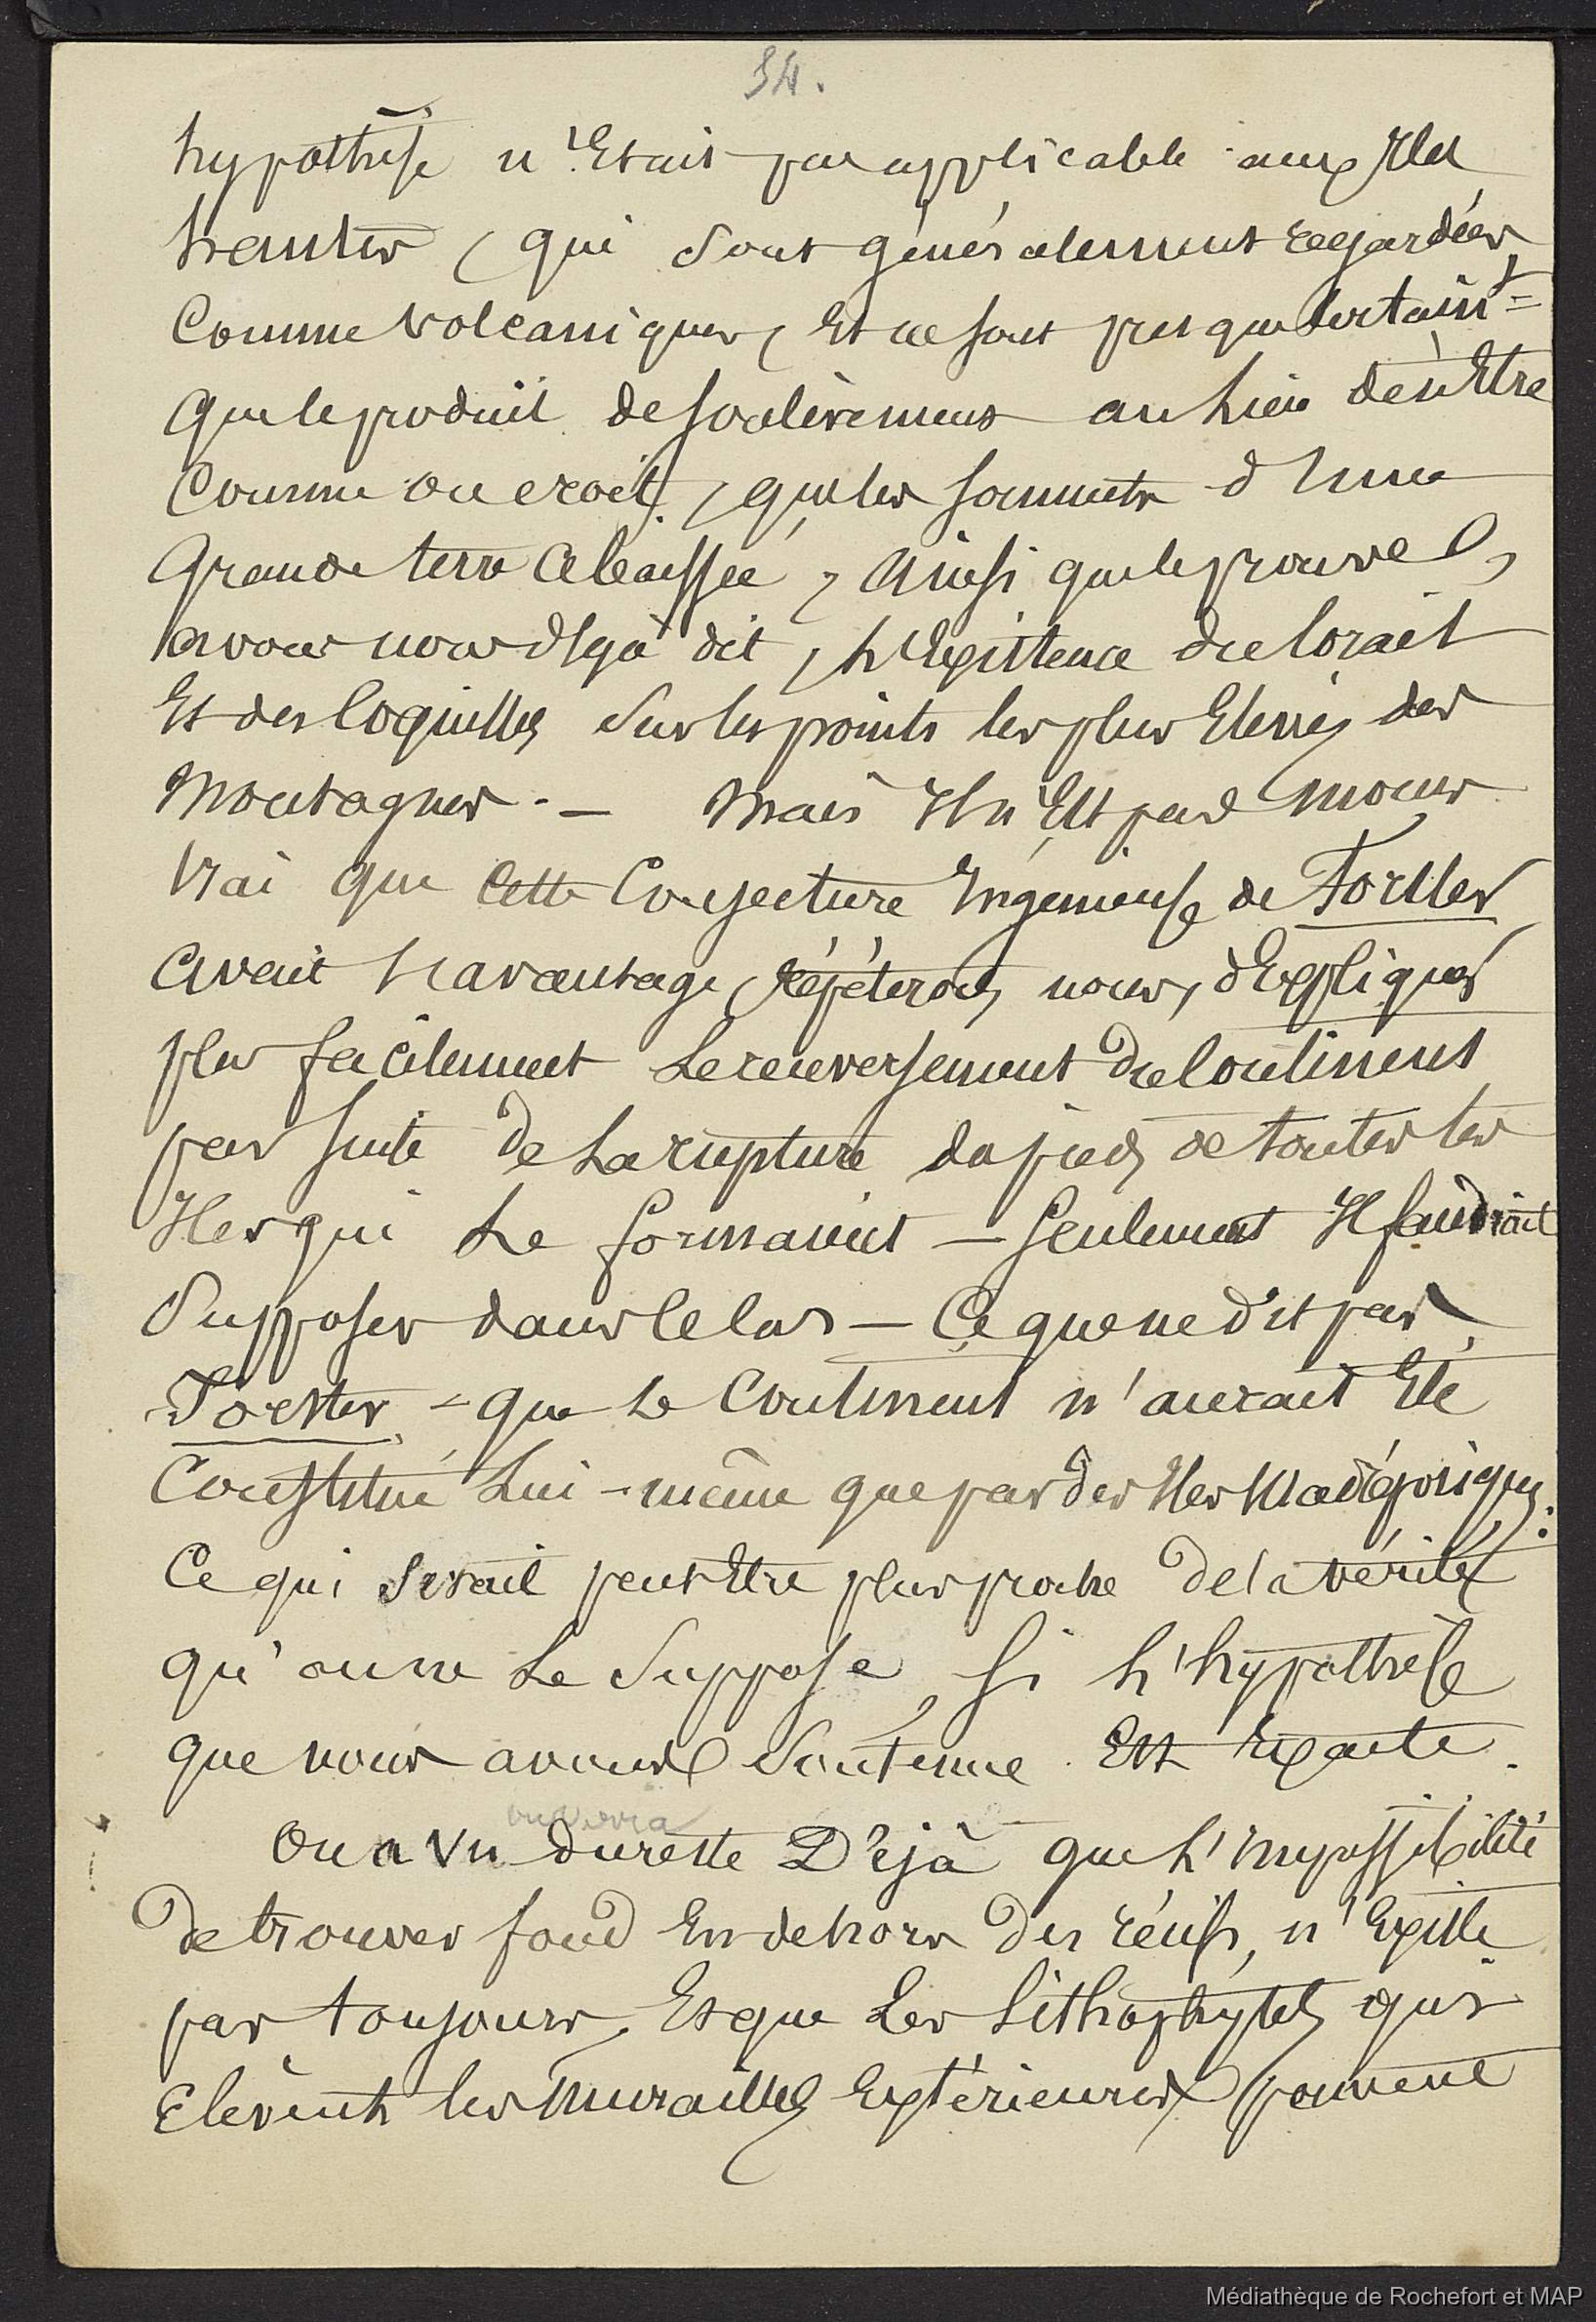 34.
hypothèse n'Etait pas applicable aux Iles
hautes, qui sont généralement regardées
Comme volcaniques, Et ne sont presque certaint
que le produit de soulèvemens au lieu de n'Etre
Comme on croit, que les sommets d'une
grande terre abaissée, Ainsi que le prouve,
avons nous déjà dit, l'Existence du Corail
Et des Coquilles sur les points les plus Elevés des
Montagnes. — Mais Il n'Est pas moins
vrai que cette Conjecture Ingénieuse de Forster
avait l'avantage, répéterons nous, d'Expliquer
plus facilement le renversement du Continent
par suite de la rupture du pied, de toutes les
Iles qui le formaient — seulement Il faudrait
supposer dans ce cas — Ce que ne dit pas
Forster — que le Continent n'aurait Eté
Constitué lui-même que par des Iles Madréporiques:
Ce qui serait peut Etre plus proche de la vérité
qu'on ne le suppose, si l'hypothèse
que nous avons soutenue Est Exacte.
on verra
On a vu du reste Déjà que l'Impossibilité
de trouver fond En dehors des récifs, n'Existe
pas toujours, Et que les Lithophytes qui
Elèvent les murailles Extérieures peuvent
Médiathèque de Rochefort et MAP